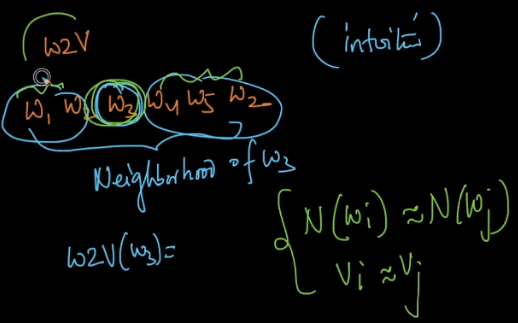 W2V
(intuitiń)
W₁ W₂ W₃ W₄ W₅ W₂
Neighborhood of W₃
W2V(W₃)=
N(Wi) ≈ N(Wj)
Vi ≈ Vj